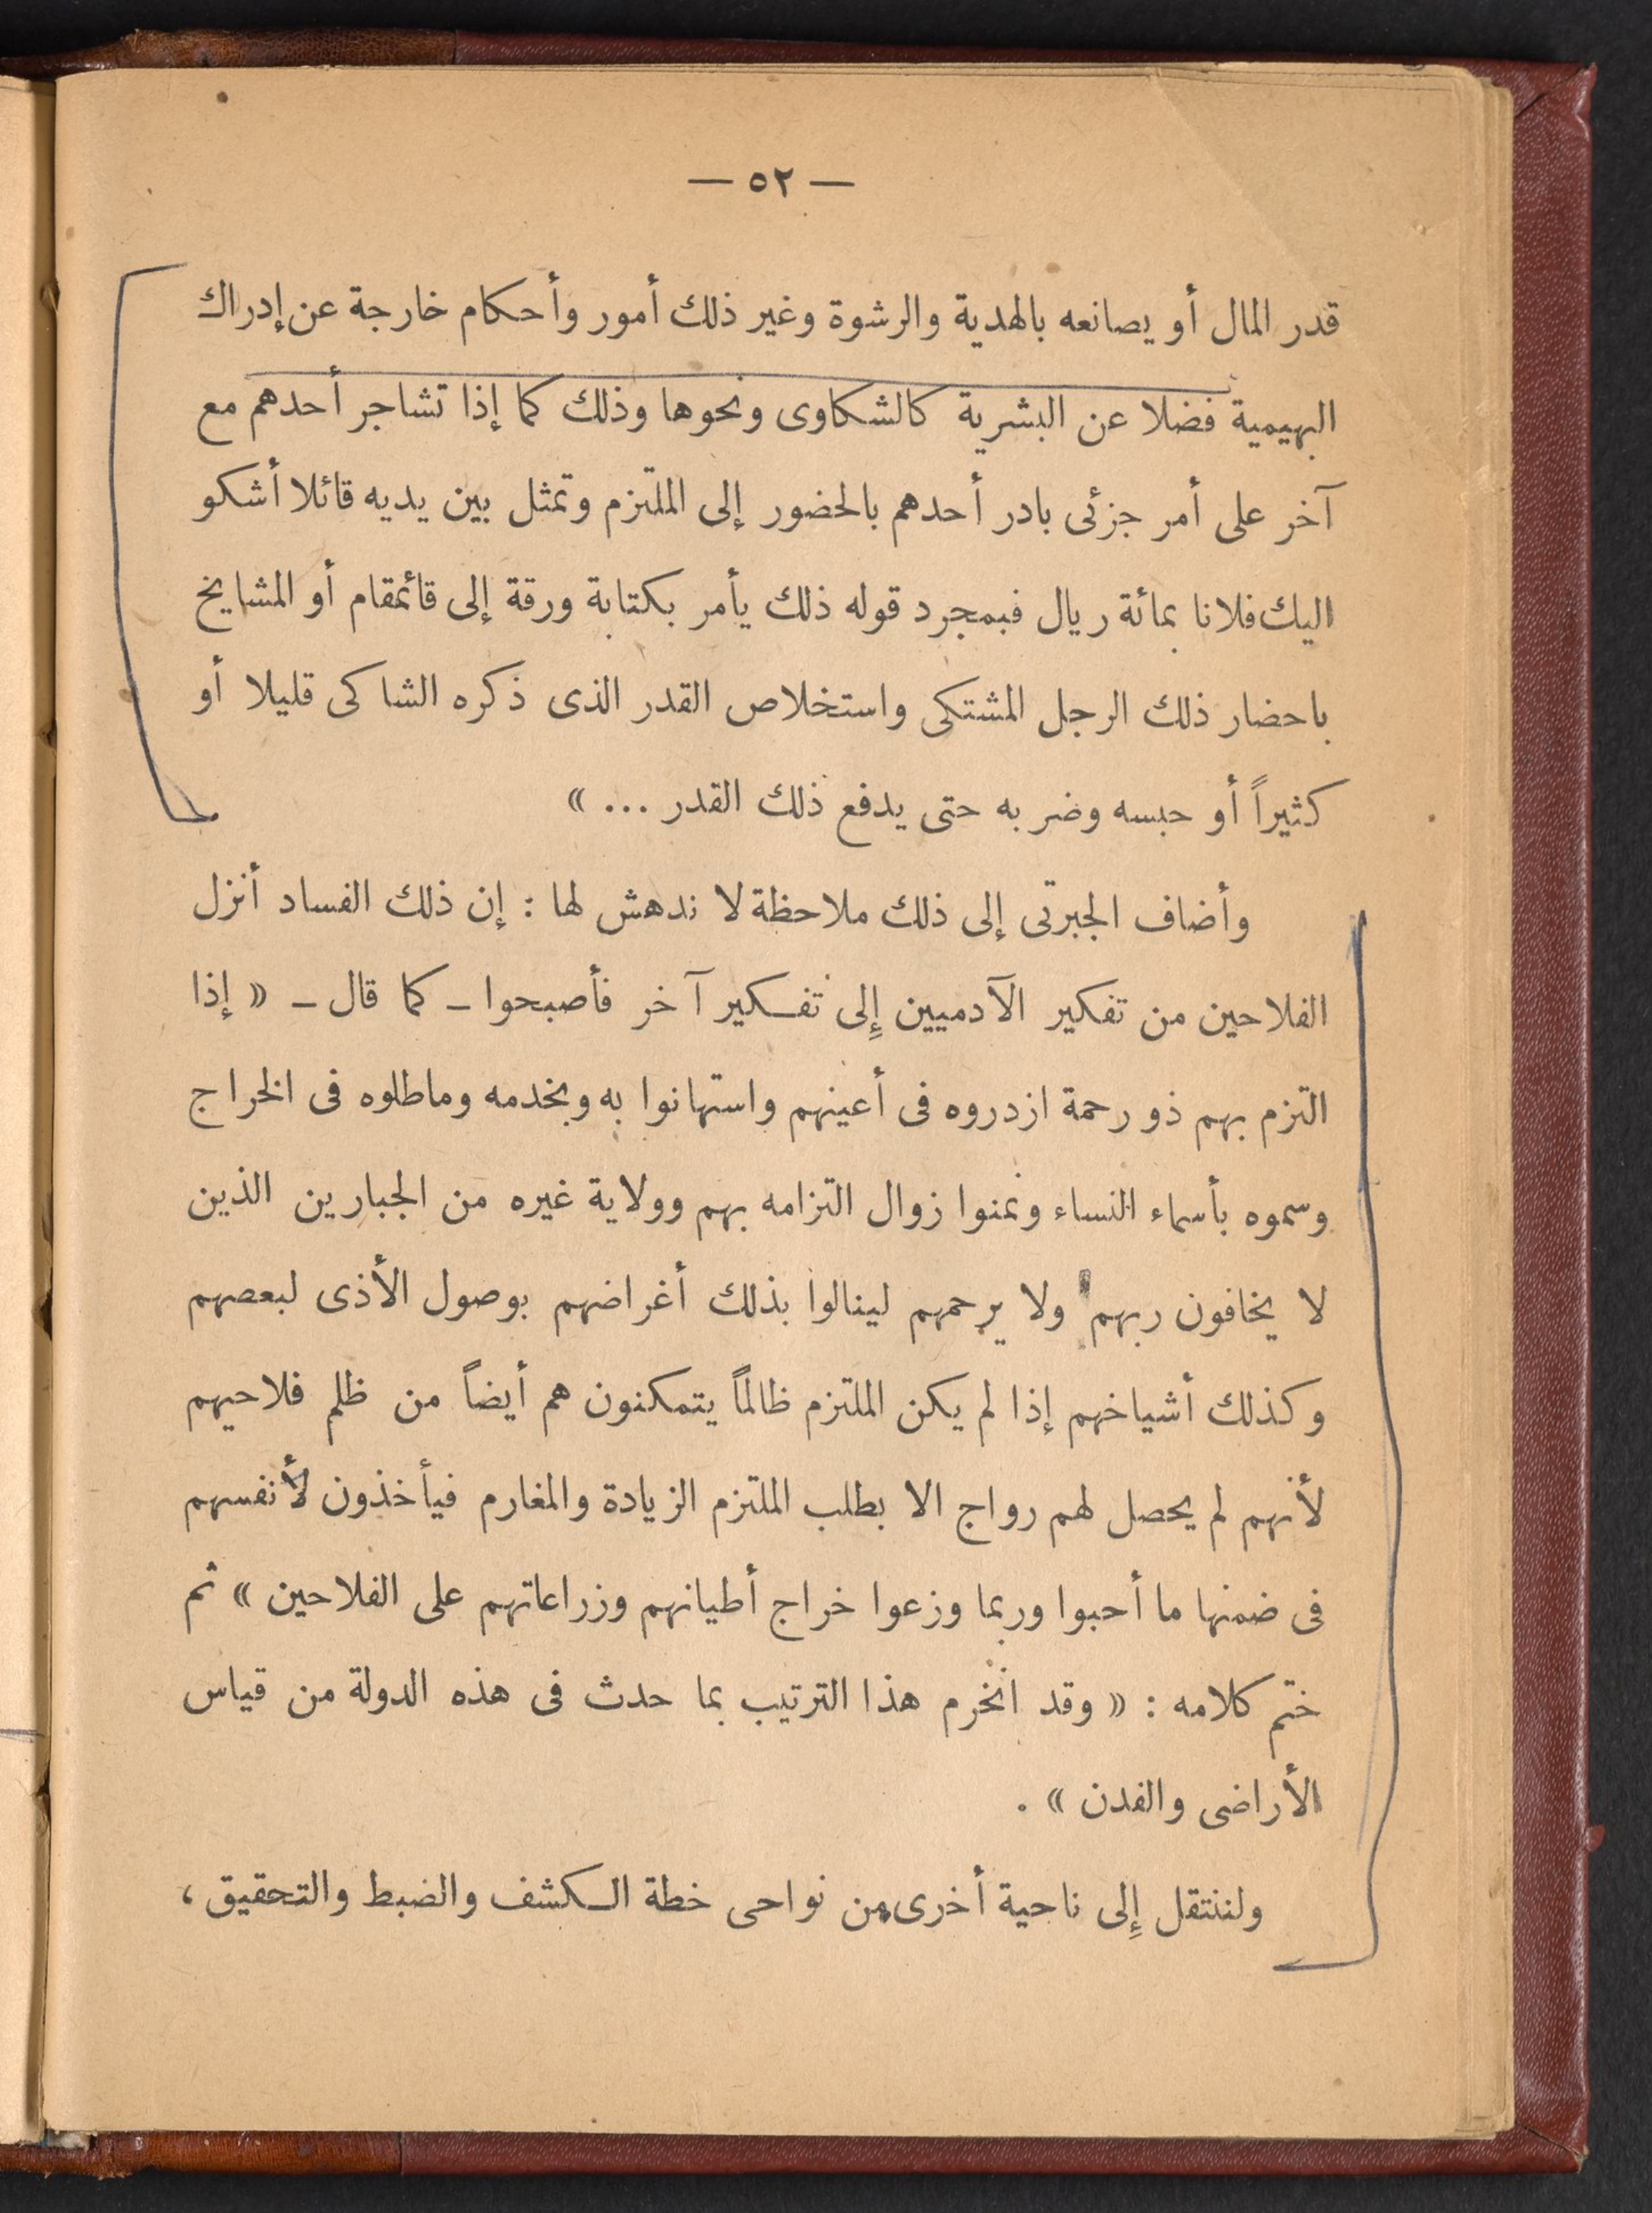 — ٥٢ —
قدر المال أو يصانعه بالهدية والرشوة وغير ذلك أمور وأحكام خارجة عن إدراك
البهيمية فضلا عن البشرية كالشكاوى ونحوها وذلك كما إذا تشاجر أحدهم مع
آخر على أمر جزئى بادر أحدهم بالحضور إلى الملتزم وتمثل بين يديه قائلا أشكو
اليك فلانا بمائة ريال فبمجرد قوله ذلك يأمر بكتابة ورقة إلى قائمقام أو المشايخ
باحضار ذلك الرجل المشتكى واستخلاص القدر الذى ذكره الشاكى قليلا أو
كثيراً أو حبسه وضربه حتى يدفع ذلك القدر ... »
وأضاف الجبرتى إلى ذلك ملاحظة لا ندهش لها : إن ذلك الفساد أنزل
الفلاحين من تفكير الآدميين إلى تفكير آخر فأصبحوا – كما قال – « إذا
التزم بهم ذو رحمة ازدروه فى أعينهم واستهانوا به وبخدمه وماطلوه فى الخراج
وسموه بأسماء النساء وتمنوا زوال التزامه بهم وولاية غيره من الجبارين الذين
لا يخافون ربهم ولا يرحمهم لينالوا بذلك أغراضهم بوصول الأذى لبعضهم
وكذلك أشياخهم إذا لم يكن الملتزم ظالماً يتمكنون هم أيضاً من ظلم فلاحيهم
لأنهم لم يحصل لهم رواج الا بطلب الملتزم الزيادة والمغارم فيأخذون لأنفسهم
فى ضمنها ما أحبوا وربما وزعوا خراج أطيانهم وزراعاتهم على الفلاحين » ثم
ختم كلامه : « وقد انخرم هذا الترتيب بما حدث فى هذه الدولة من قياس
الأراضى والفدن » .
ولننتقل إلى ناحية أخرى من نواحى خطة الكشف والضبط والتحقيق ،